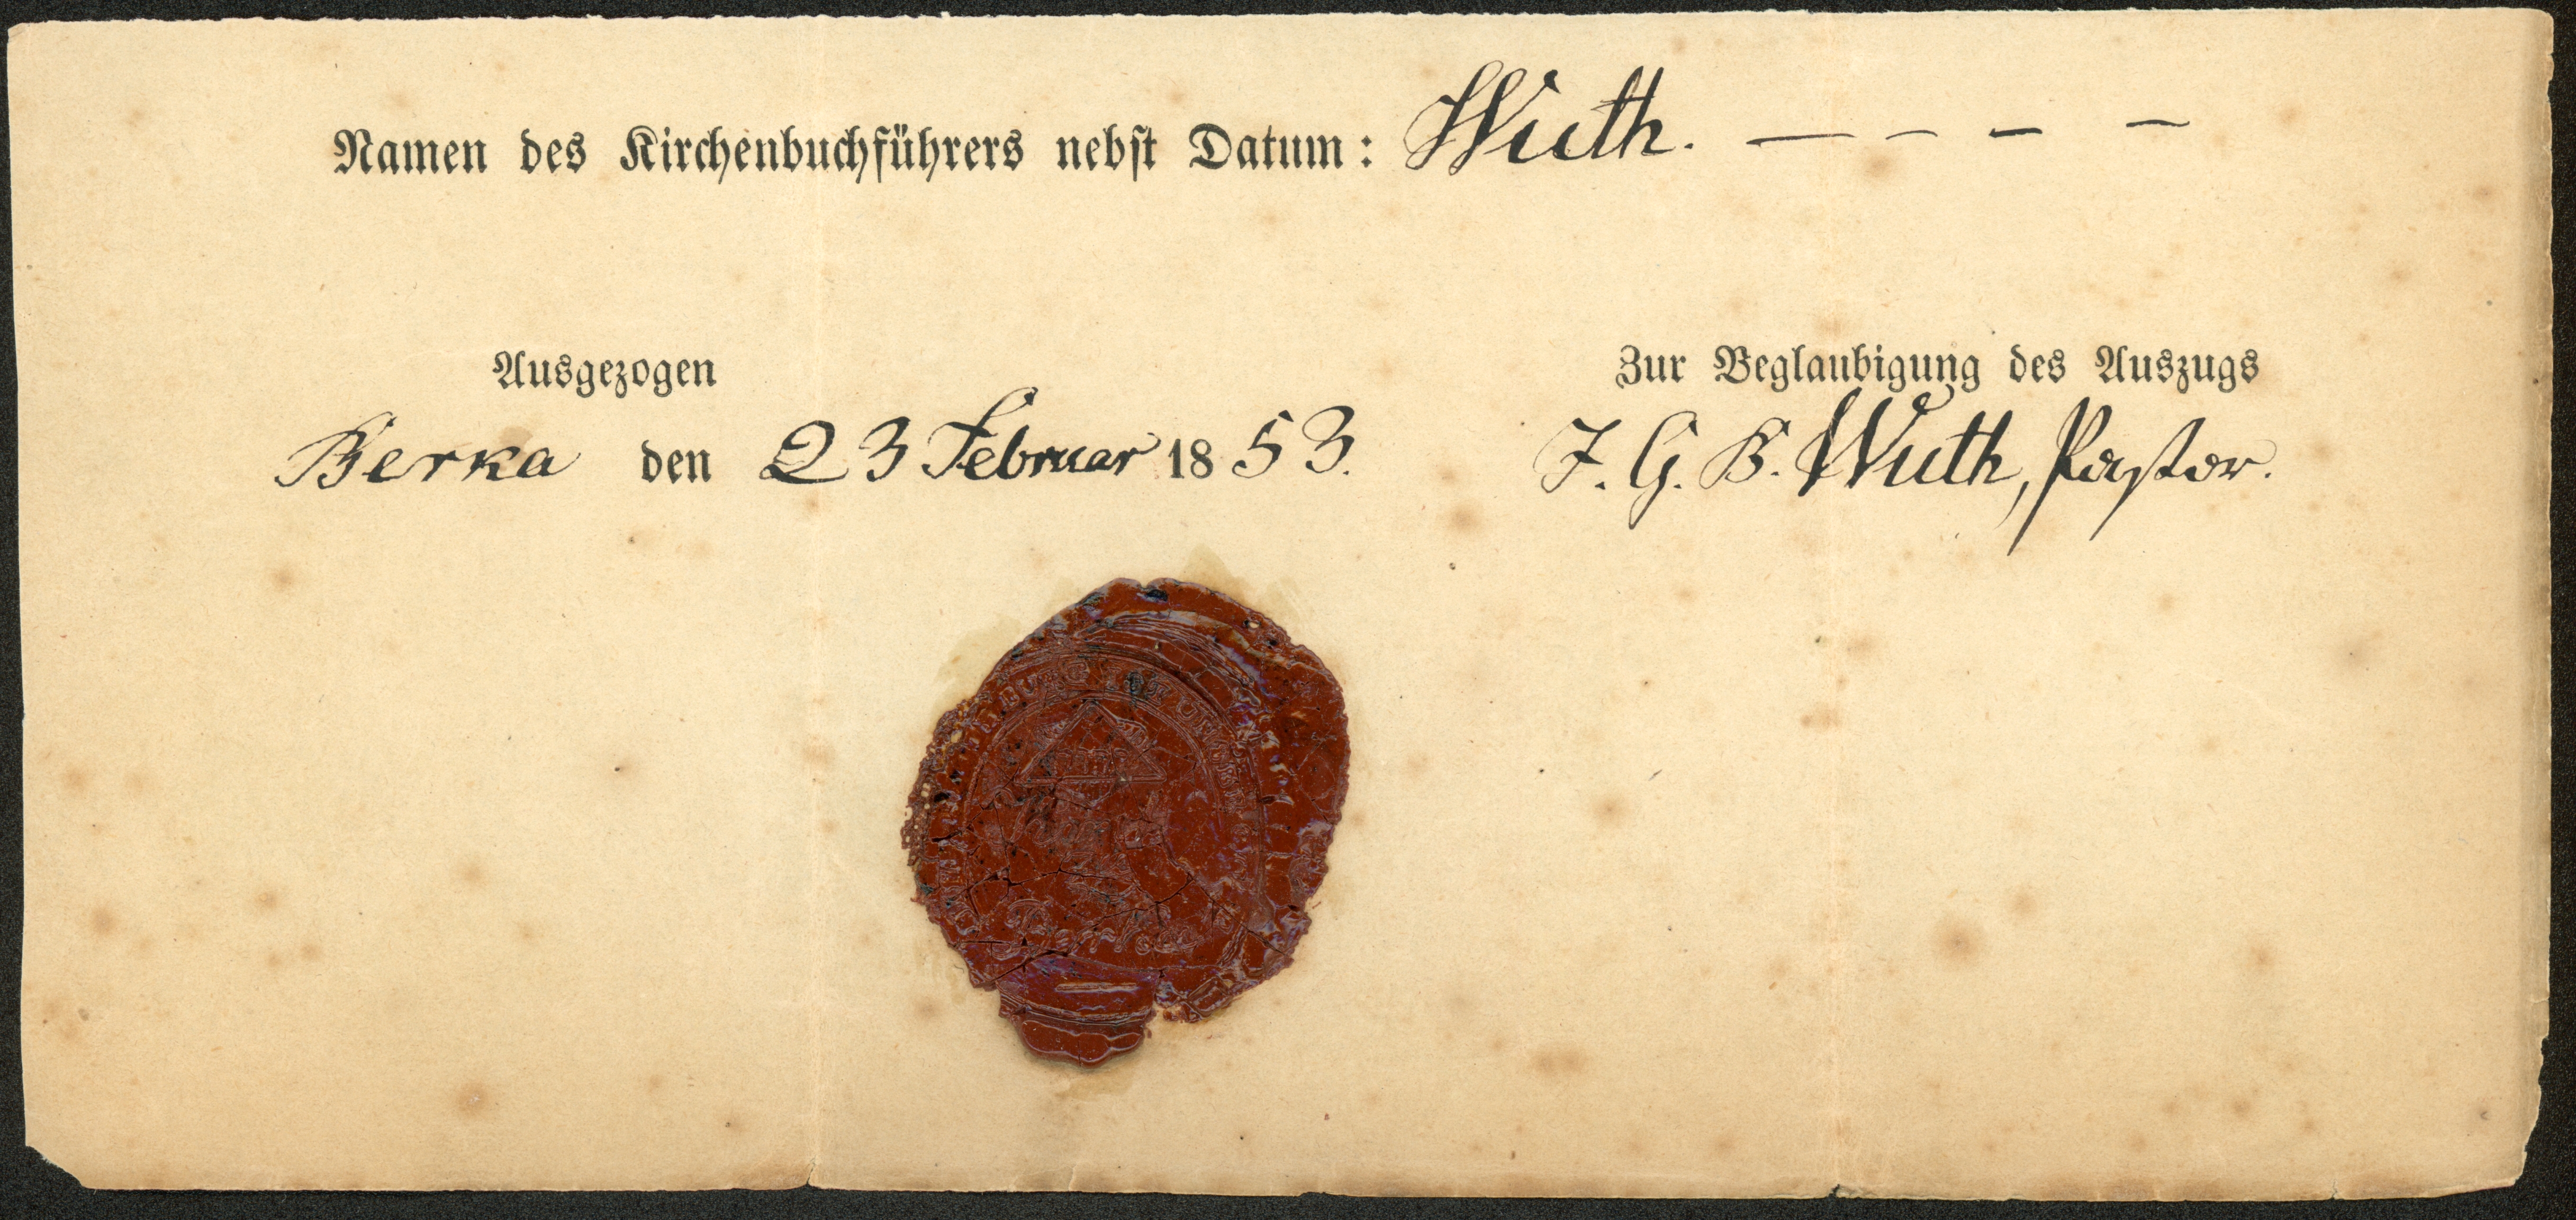 Namen des Kirchenbuchführers nebst Datum: Wuth. — – – –
Ausgezogen
Zur Beglaubigung des Auszugs
Berka den 23 Februar 1853.
J. G. B. Wuth, Pastor.